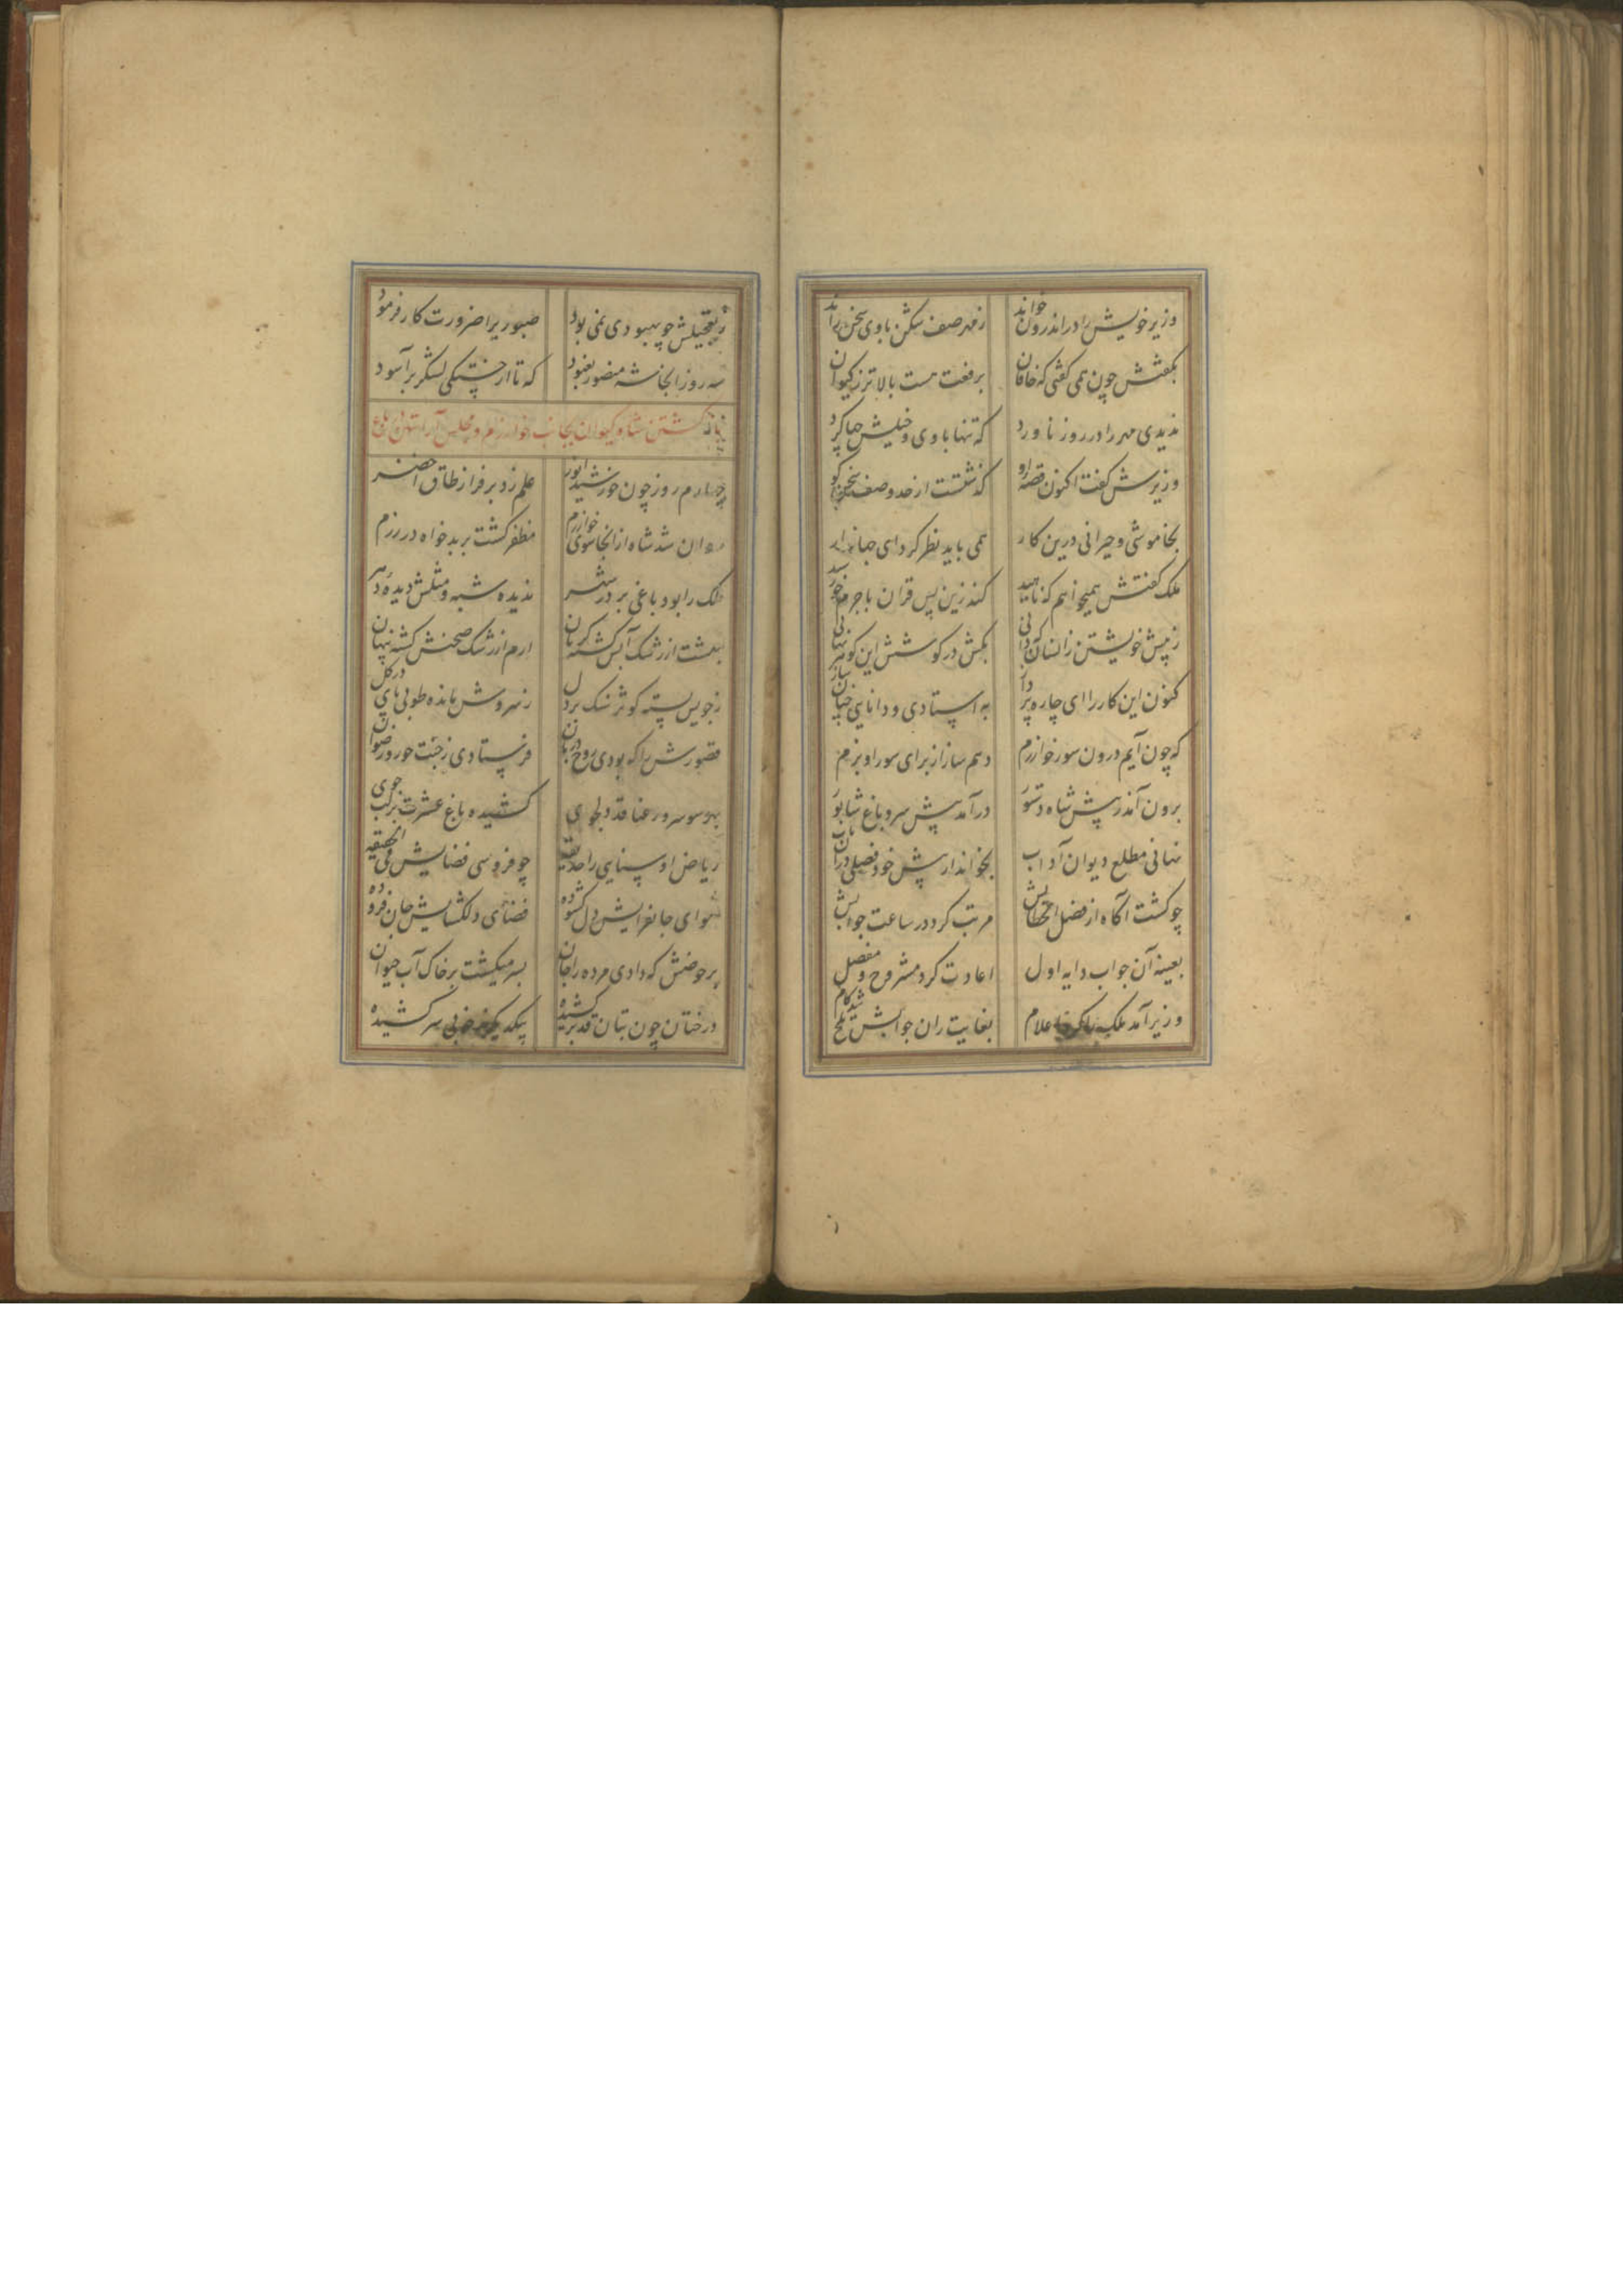 وزیر خویش را در اندرون خواند ز مهر صف شکن با وی سخن راند
بگفتش چون نمی کفتی که خاقان برفعت هست بالاتر ز کیوان
ندیدی مهر را در روز ناورد که تنها با وی و خیلش چها کرد
وزیرش گفت اکنون قصه او گذشتست از حد و صف سخن گو
بخاموشی و حیرانی درین کار نمی باید نظر کرد ای جهاندار
ملک گفتش همیخواهم که ناهید کند زین پس قران با جرم خورشید
ز پیش خویشتن زانسان که دانی بکش در گوشش این گوهر نهانی
کنون این کار را ای چاره پرداز به استادی و دانایی چنان ساز
که چون آیم درون سور خوارزم دهم ساز از برای سور او بزم
برون آمد ز پیش شاه دستور درآمد پیش سرو باغ شاپور
نهانی مطلع دیوان آداب بخواند از پیش خود فصلی در آن باب
چو گشت آگاه از فضل خطابش مرتب کرد در ساعت جوابش
بعینه آن جواب دایه اول اعادت کرد مشروح و مفصل
وزیر آمد ملک را کرد اعلام بغایت زان جوابش تلخ شد کام
ز تعجیلش چو بهبودی نمی بود صبوری را ضرورت کار فرمود
سه روز آنجا شه منصور بغنود که تا از خستگی لشکر برآسود
باز گشتن شاه و کیوان بجانب خوارزم و مجلس آراستن در باغ
چهارم روز چون خورشید انور علم زد بر فراز طاق اخضر
روان شد شاه از آنجا سوی خوارزم مظفر گشت بر بدخواه در رزم
ملک را بود باغی بر در شهر ندیده شبه و مثلش دیده دهر
بهشت از رشک آبش گشته گریان ارم از رشک صحنش گشته پنهان
ز جویش بسته کوثر سنگ بر دل ز سروش مانده طوبی پای در گل
قصورش را که بودی روح دربان فرستادی ز جنت حور رضوان
بهر سو سرو رعنا قد دلجوی کشیده باغ عشرت بر لب جوی
ریاض او سنایی را حدیقه چو فردوسی فضایش فی الحقیقه
هوای جانفزایش دل گشوده فضای دلگشایش جان فزوده
بر حوضش که دادی مرده را جان بسر میگشت بر خاک آب حیوان
درختان چون بتان قد برکشیده بیکدیگر سر کشیده